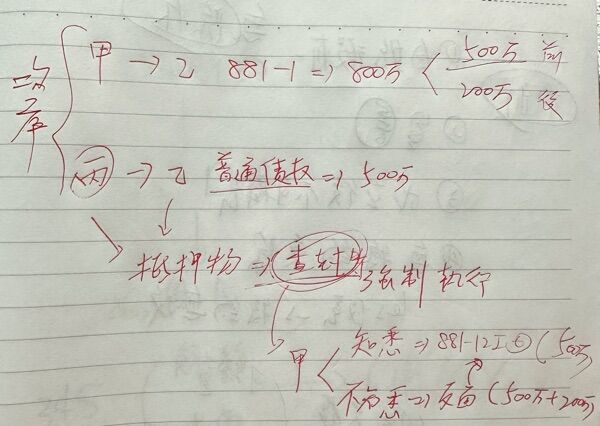 甲 → 乙 881-1 => 800万 < 500万 前
200万 後
丙 → 乙 普通債权 => 500万
抵押物 => 查封 强制执行
甲 < 知悉 => 881-12I⑥ (500万)
不知悉 => 反面 (500万+200万)